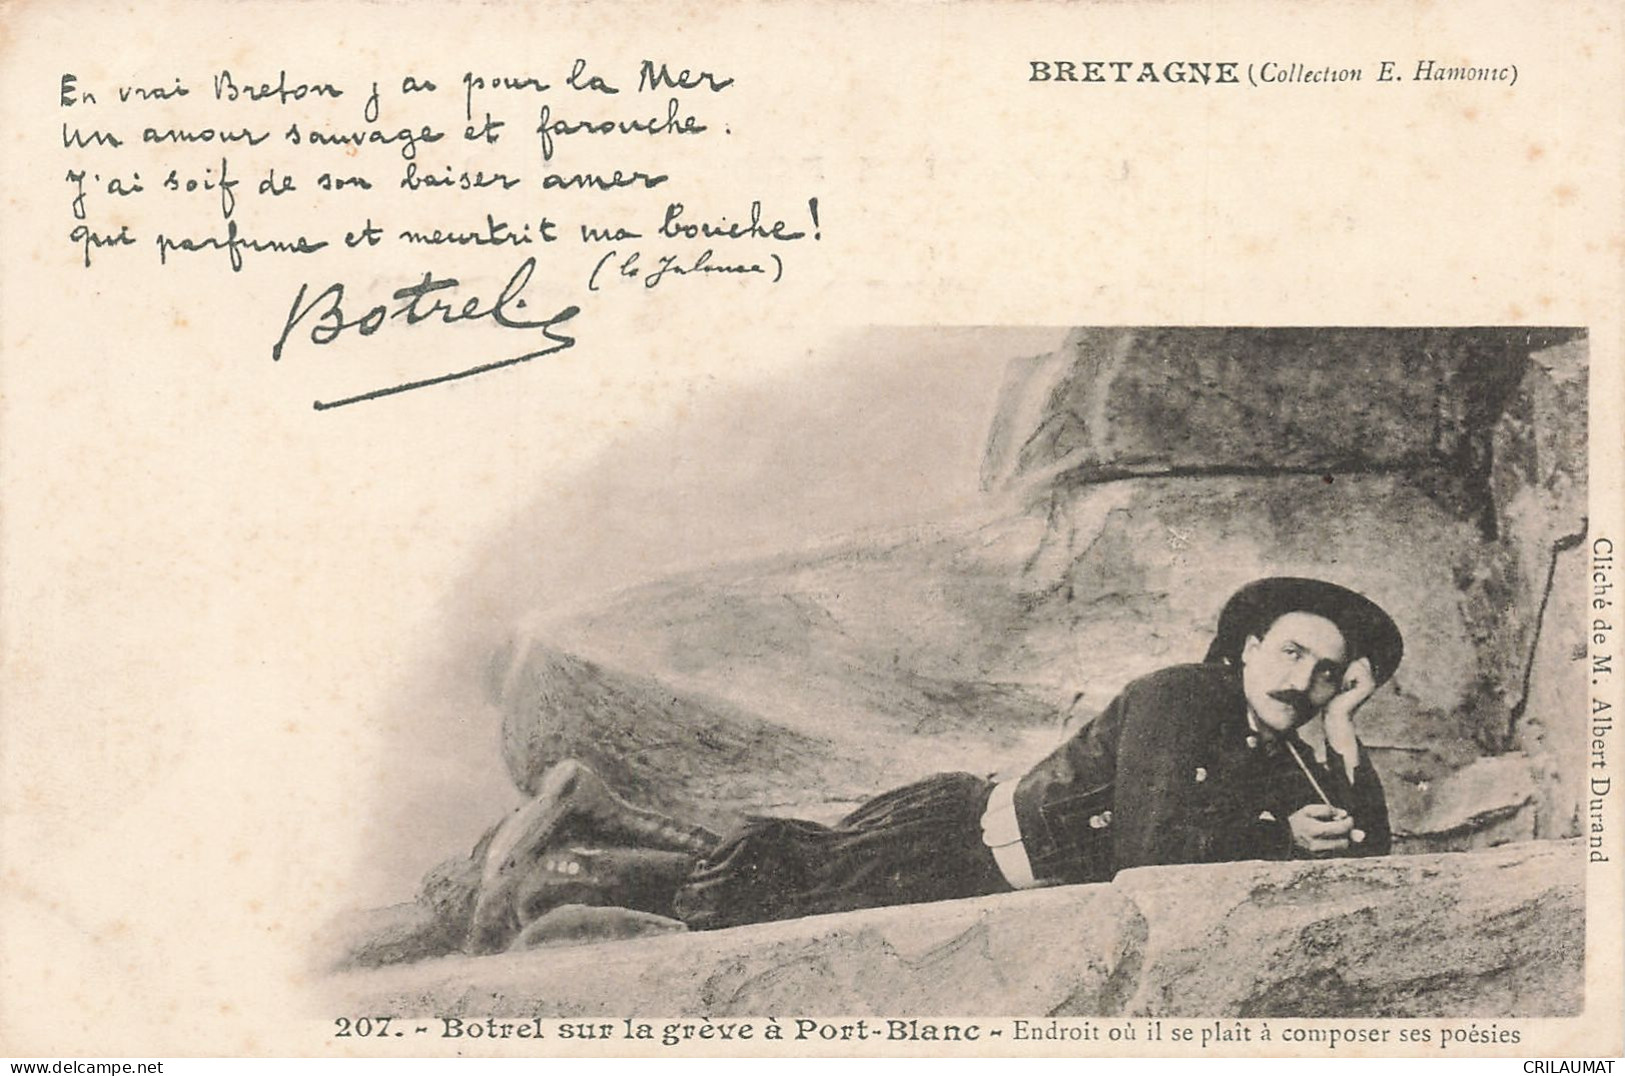 En vrai Breton j'ai pour la Mer
Un amour sauvage et farouche.
J'ai soif de son baiser amer
qui parfume et meurtrit ma bouche !
(la Jalouse)
Botrel
BRETAGNE (Collection E. Hamonic)
Cliché de M. Albert Durand
207. - Botrel sur la grève à Port-Blanc - Endroit où il se plaît à composer ses poésies
https://www.delcampe.net
CRILAUMAT